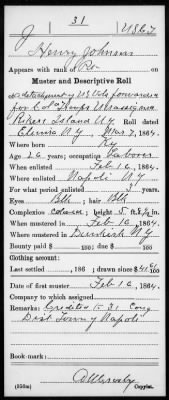 J 31 U.S.C.T.
Henry Johnson
Appears with rank of Pvt on
Muster and Descriptive Roll
of a detachment of U.S. Vols. forwarded
for Col'd Troops Unassigned
Rikers Island N.Y. Roll dated
Elmira N.Y., Mar 7, 1864.
Where born Ky
Age 26 years; occupation Laborer
When enlisted Feb 16, 1864.
Where enlisted Napoli N.Y.
For what period enlisted 3 years.
Eyes Blk; hair Blk
Complexion colored; height 5 ft. in.
When mustered in Feb 16, 1864.
Where mustered in Dunkirk N.Y.
Bounty paid $ 100; due $ 100
Clothing account:
Last settled , 186 ; drawn since $ 100
Date of first muster Feb 16, 1864
Company to which assigned
Remarks: Credited to 31 Cong
Dist Town of Napoli
Book-mark:
(356m) Copyist.